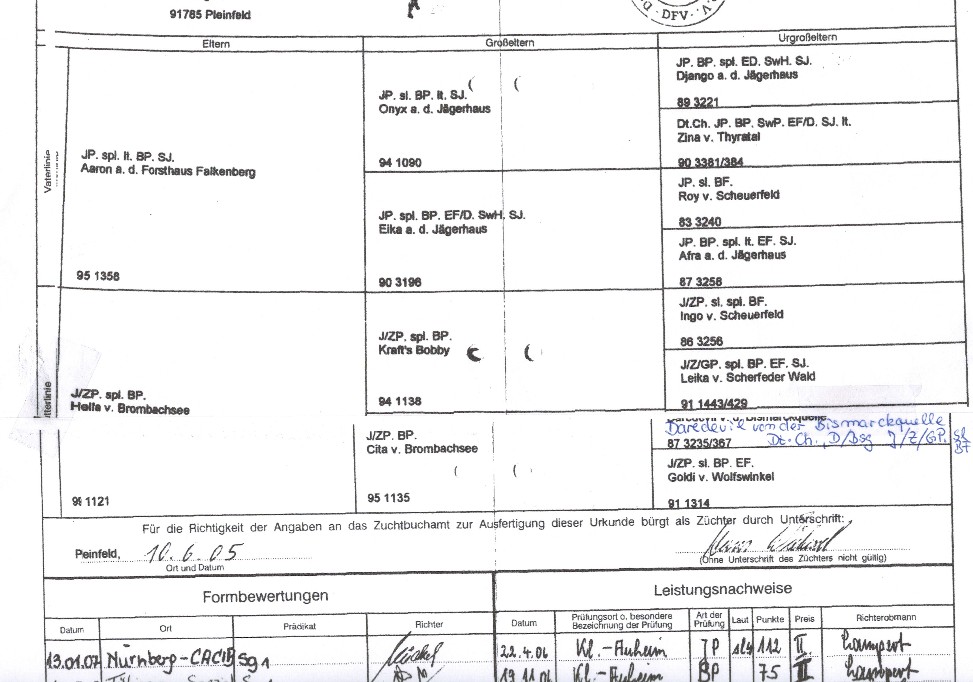 91785 Pleinfeld
· DFV ·
Eltern
Großeltern
Urgroßeltern
Vaterlinie
JP. spl. lt. BP. SJ.
Aaron a. d. Forsthaus Falkenberg
95 1358
JP. sl. BP. lt. SJ.
Onyx a. d. Jägerhaus
94 1090
JP. spl. BP. EF/D. SwH. SJ.
Eika a. d. Jägerhaus
90 3196
JP. BP. spl. ED. SwH. SJ.
Django a. d. Jägerhaus
89 3221
Dt.Ch. JP. BP. SwP. EF/D. SJ. lt.
Zina v. Thyratal
90 3381/384
JP. sl. BF.
Roy v. Scheuerfeld
83 3240
JP. BP. spl. lt. EF. SJ.
Afra a. d. Jägerhaus
87 3258
J/ZP. spl. BP.
Hella v. Brombachsee
J/ZP. spl. BP.
Kraft's Bobby
94 1138
J/ZP. sl. spl. BF.
Ingo v. Scheuerfeld
86 3256
J/Z/GP. spl. BP. EF. SJ.
Leika v. Scherfeder Wald
91 1443/429
1121
J/ZP. BP.
Cita v. Brombachsee
95 1135
Daredevil von der Bismarckquelle
87 3235/367
Dt.Ch., D/Bsg J/Z/GP. sl
BF
J/ZP. sl. BP. EF.
Goldi v. Wolfswinkel
91 1314
Für die Richtigkeit der Angaben an das Zuchtbuchamt zur Ausfertigung dieser Urkunde bürgt als Züchter durch Unterschrift:
Peinfeld, 10.6.05
Ort und Datum
(Ohne Unterschrift des Züchters nicht gültig)
Formbewertungen
Leistungsnachweise
Datum Ort Prädikat Richter
Datum Prüfungsort o. besondere Bezeichnung der Prüfung Art der Prüfung Laut Punkte Preis Richterobmann
13.01.07 Nürnberg-CACIB Sg 1
22.4.06 Kl.-Auheim JP slg 112 II Lampert
19.11.06 Kl.-Auheim BP 75 II Lampert